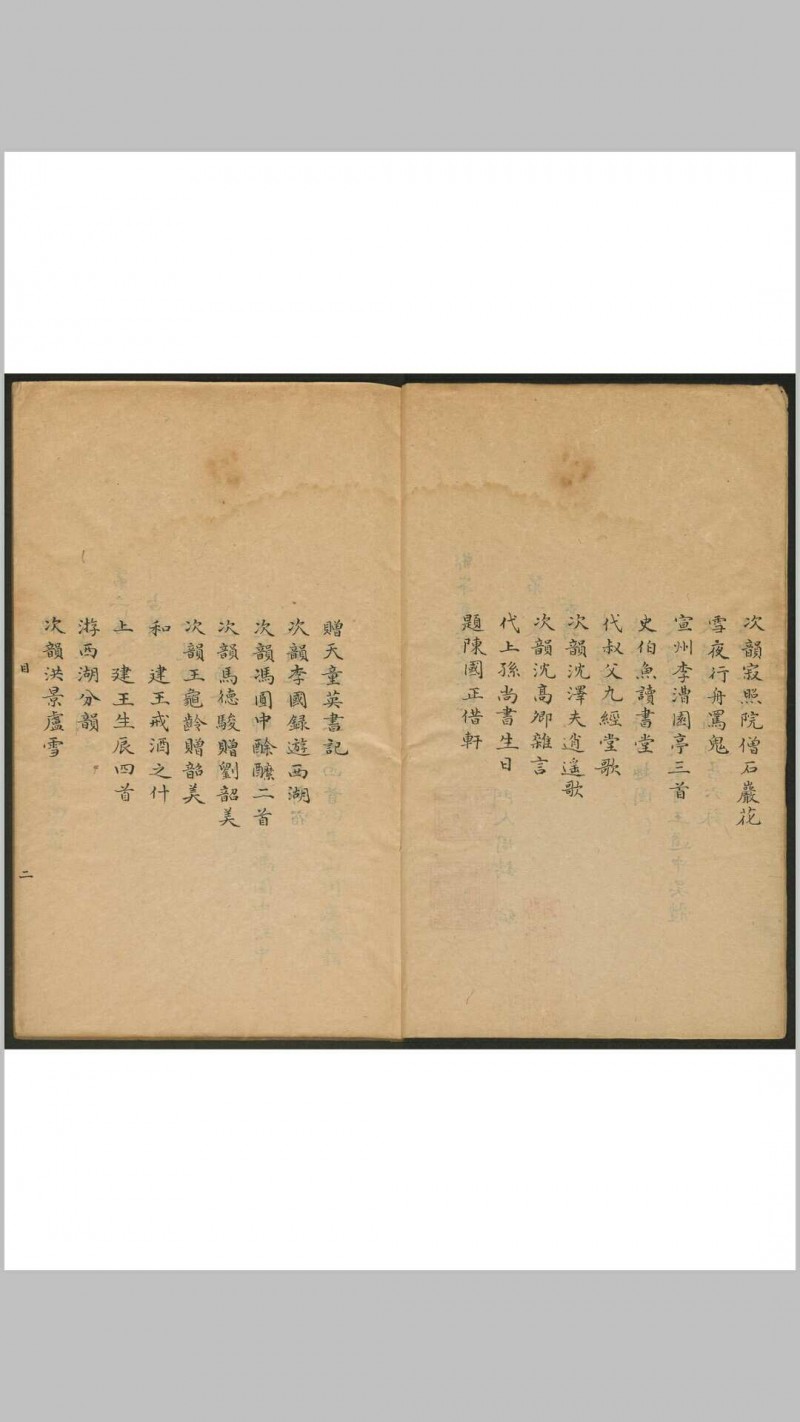 次韻寂照院僧石巖花
雪夜行舟罵鬼
宣州李漕園亭三首
史伯魚讀書堂
代叔父九經堂歌
次韻沈澤夫逍遙歌
次韻沈高卿雜言
代上孫尚書生日
題陳國正借軒
贈天童英書記
次韻李國録遊西湖
次韻馮圓中酴醾二首
次韻馬德駿贈劉韶美
次韻王龜齡贈韶美
和　建王戒酒之什
上　建王生辰四首
游西湖分韻
次韻洪景盧雪
目　二